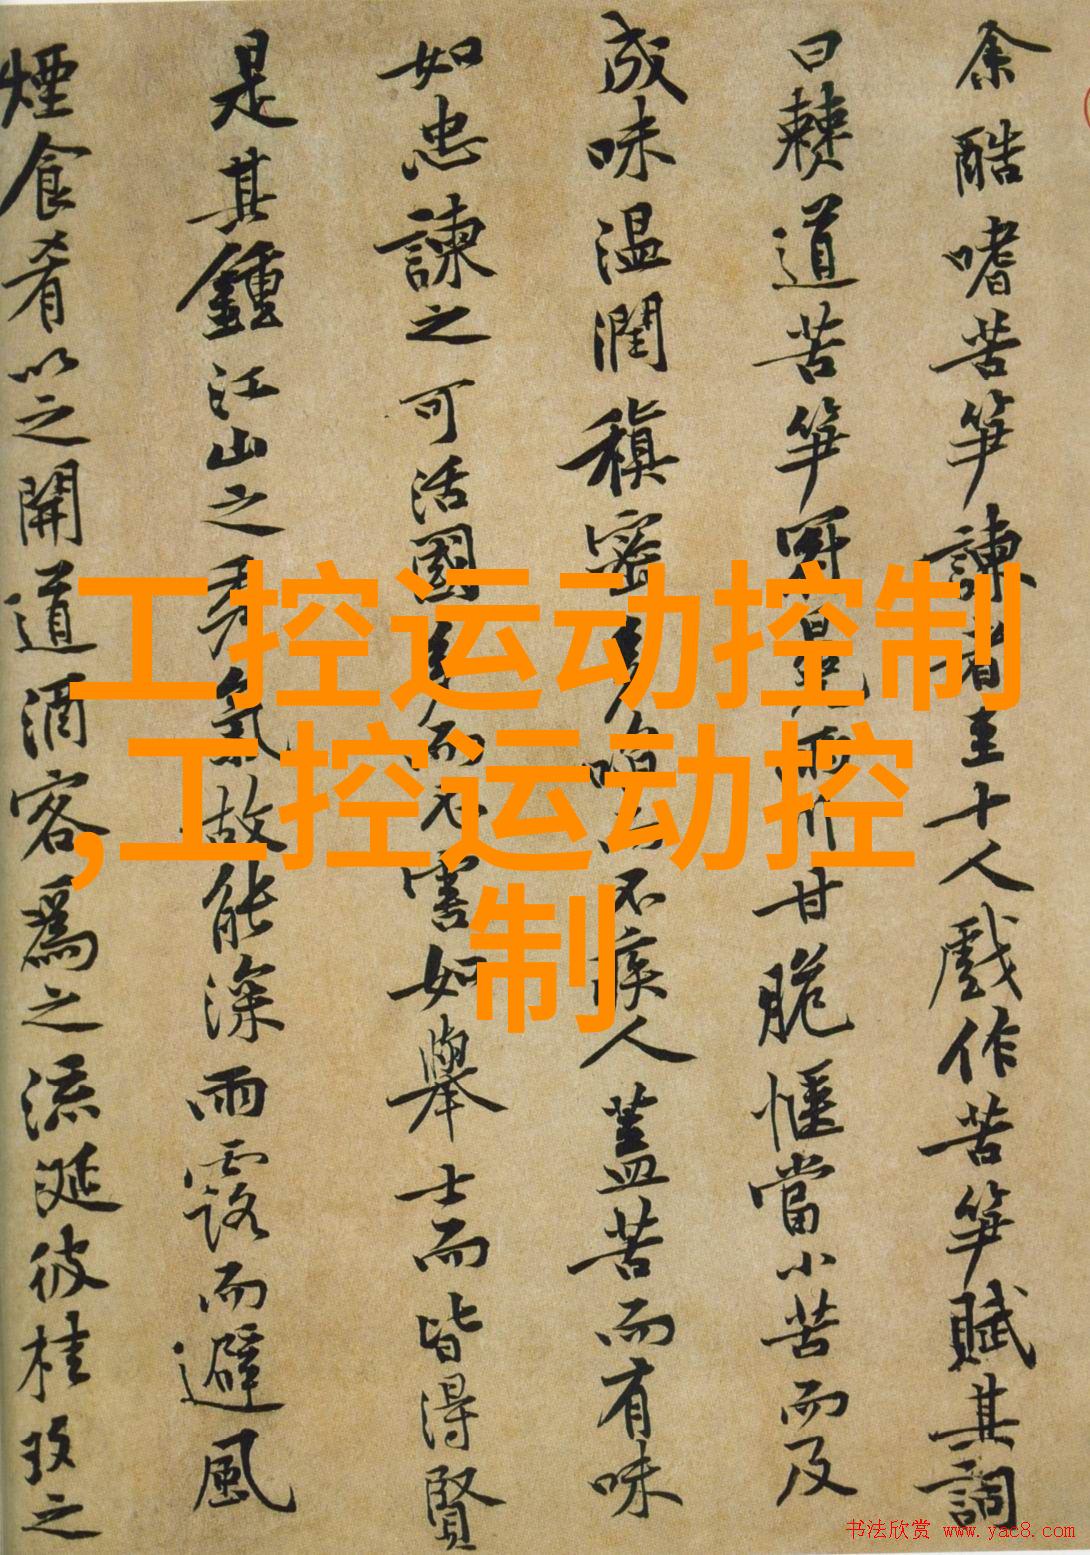 余酷嗜苦笋諫者至十人戲作苦笋賦其詞
曰僰道苦笋冠冕兩川甘脆愜當小苦而及
成味温潤稹密多啗而不疾人蓋苦而有味
如忠諫之可活國多而不害如舉士而皆得賢
是其鍾江山之秀氣故能深雨露而避風
煙食肴以之開道酒客爲之流涎彼桂玫之
工控运动控制
,工控运动控
制
书法欣赏 www.yac8.com